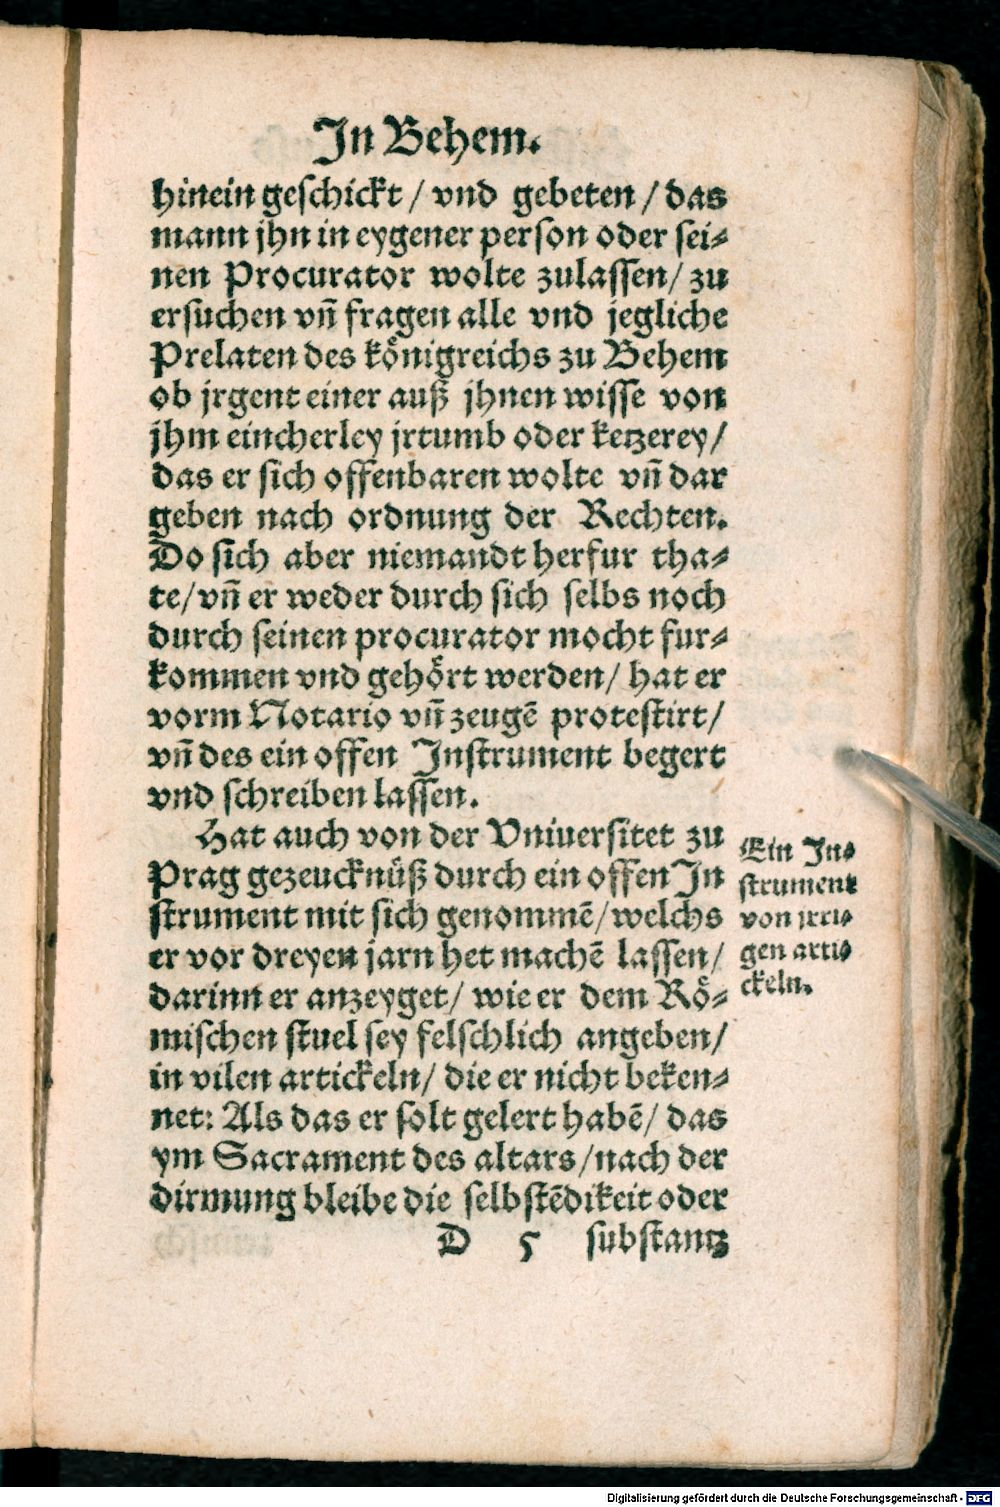 In Behem.
hinein geschickt / vnd gebeten / das
mann jhn in eygener person oder sei⸗
nen Procurator wolte zulassen / zu
ersuchen vñ fragen alle vnd jegliche
Prelaten des königreichs zu Behem
ob jrgent einer auß jhnen wisse von
jhm eincherley jrtumb oder ketzerey /
das er sich offenbaren wolte vñ dar
geben nach ordnung der Rechten.
Do sich aber niemandt herfur tha⸗
te / vñ er weder durch sich selbs noch
durch seinen procurator mocht fur⸗
kommen vnd gehört werden / hat er
vorm Notario vñ zeugẽ protestirt /
vñ des ein offen Instrument begert
vnd schreiben lassen.
Hat auch von der Vniuersitet zu
Prag gezeucknüß durch ein offen In
strument mit sich genommẽ / welchs
er vor dreyen jarn het machẽ lassen /
darinn er anzeyget / wie er dem Rö⸗
mischen stuel sey felschlich angeben /
in vilen artickeln / die er nicht beken⸗
net: Als das er solt gelert habẽ / das
ym Sacrament des altars / nach der
dirmung bleibe die selbstẽdikeit oder
D 5 substantz
Ein In⸗
strument
von jrri⸗
gen arti⸗
ckeln.
Digitalisierung gefördert durch die Deutsche Forschungsgemeinschaft - DFG